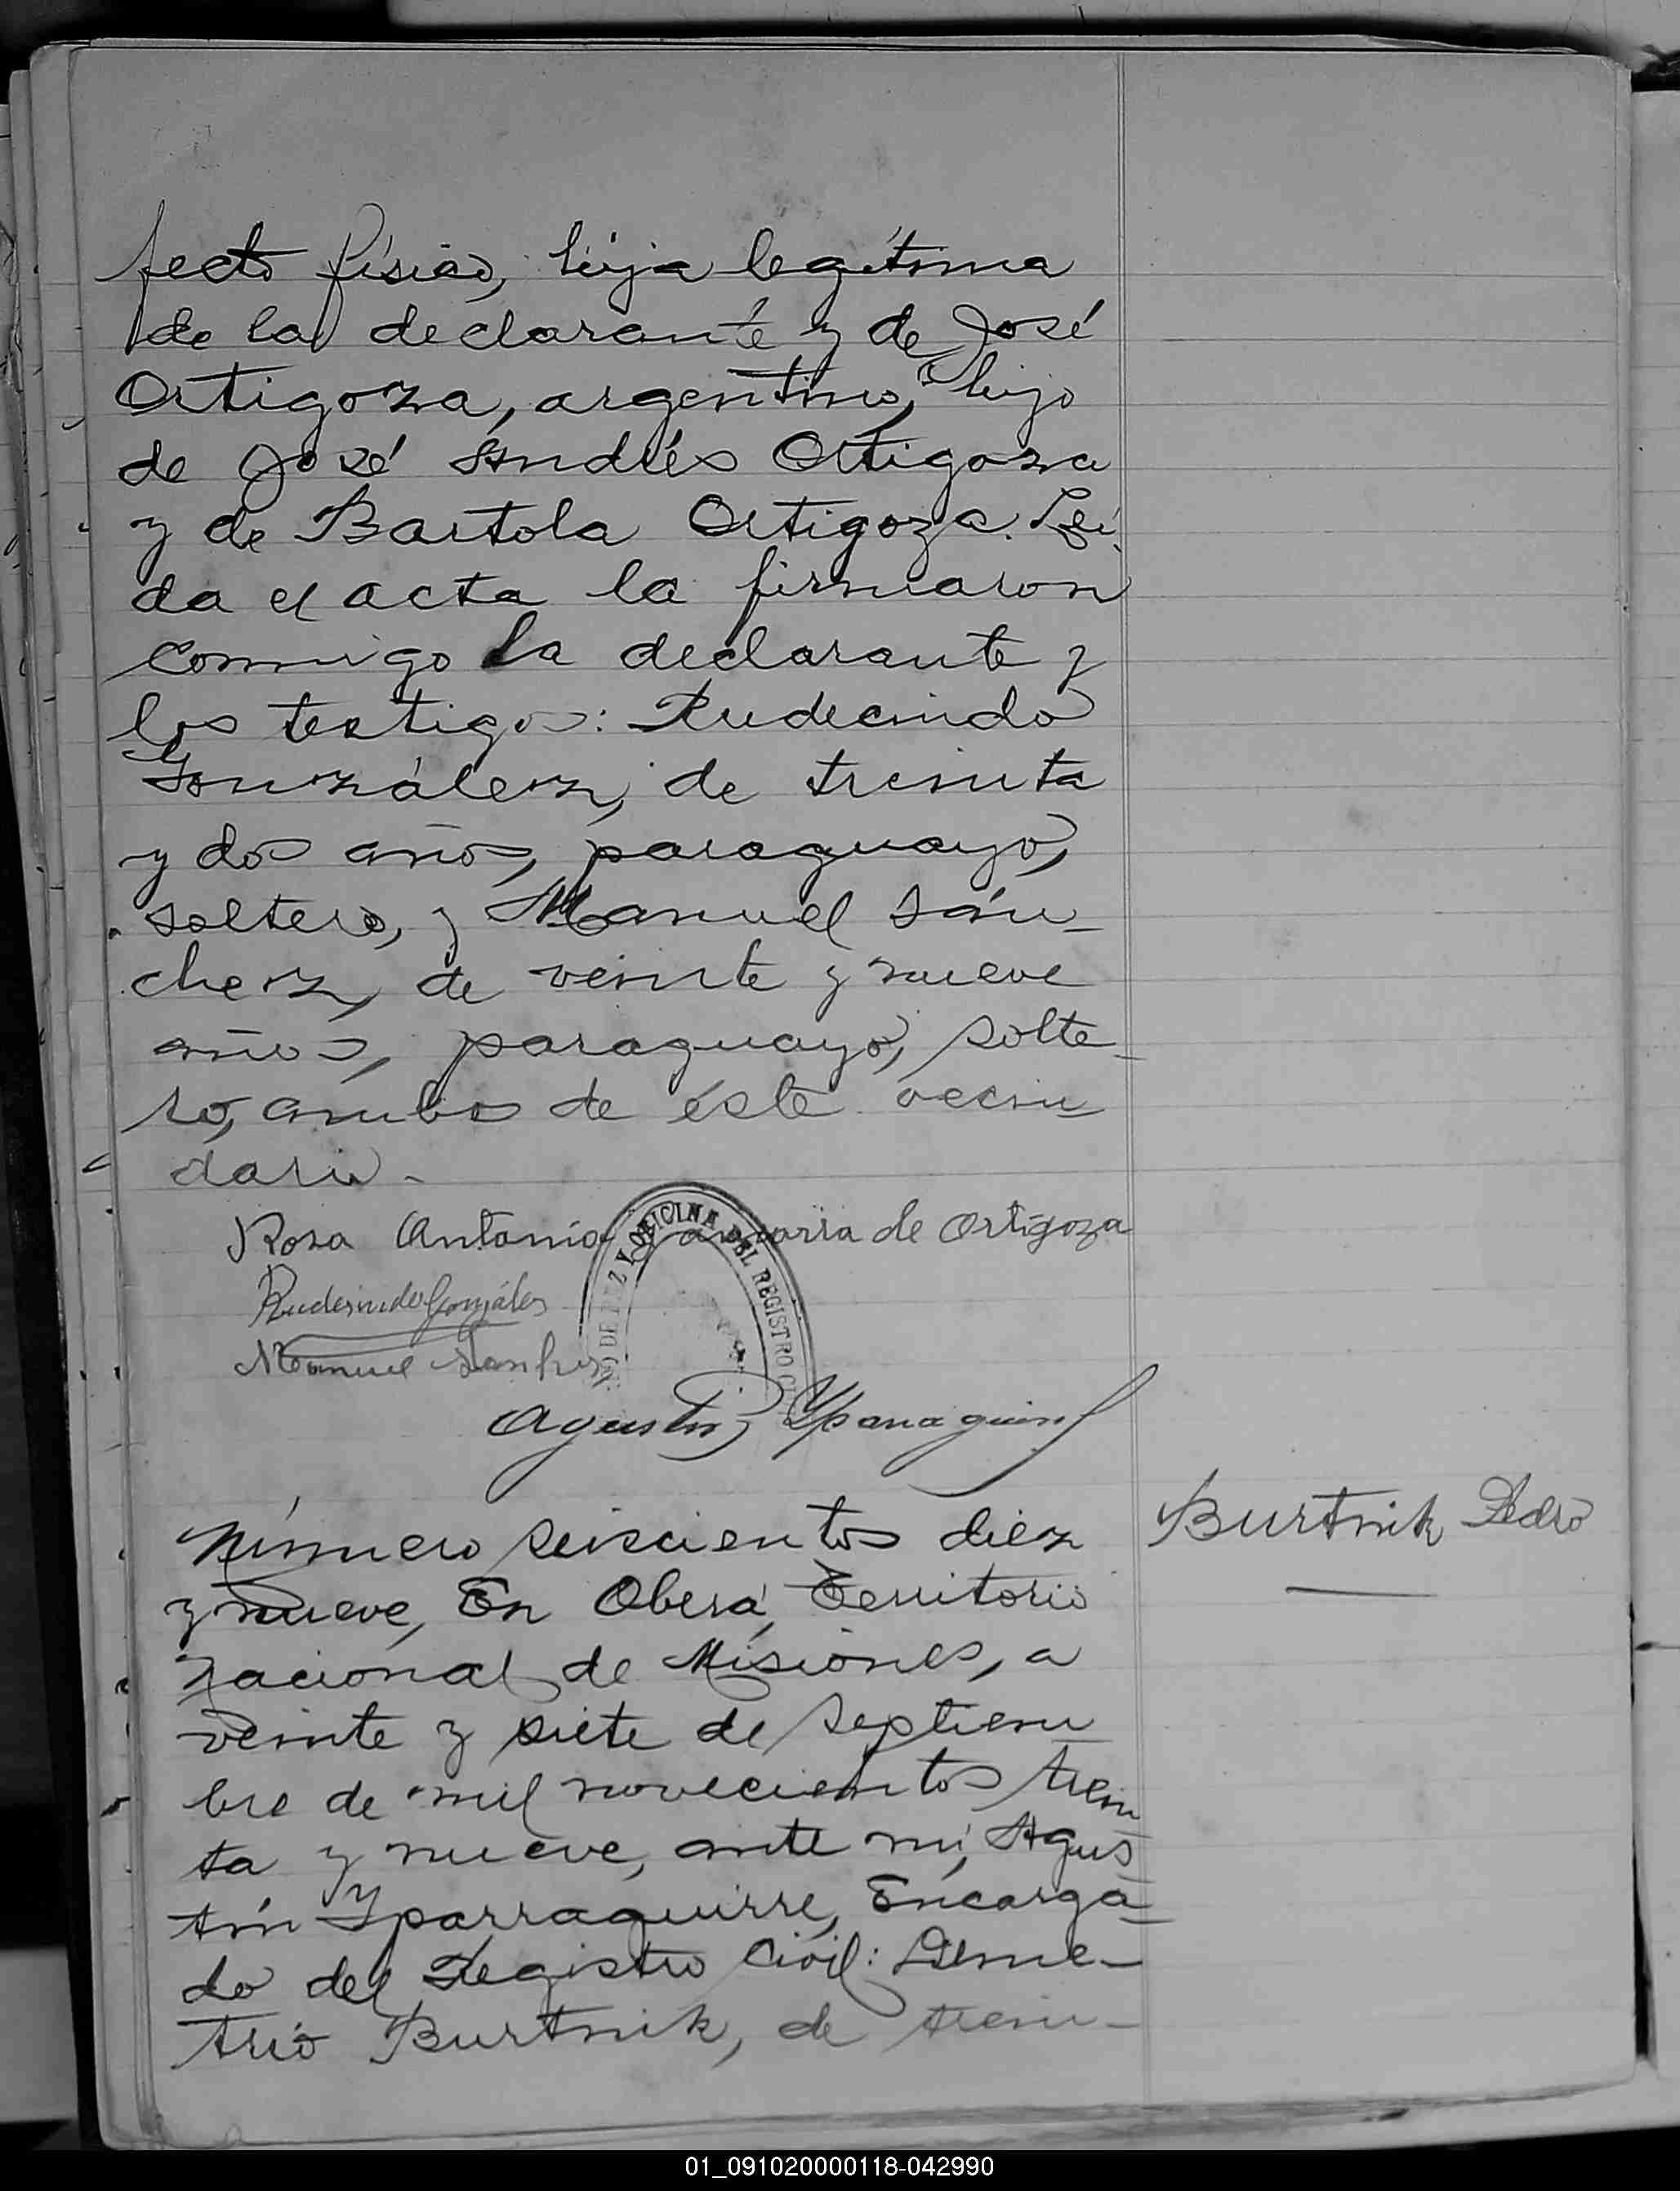 fecto físico, hija legítima
de la declarante y de José
Ortigoza, argentino, hijo
de José Andrés Ortigoza
y de Bartola Ortigoza. Leí
da el acta la firmaron
conmigo la declarante y
los testigos: Rudecindo
González, de treinta
y dos años, paraguayo,
soltero, y Manuel Sán-
chez, de veinte y nueve
años, paraguayo, solte-
ro, ambos de éste vecin
dario.-
Rosa Antonia de Ortigoza
Rudesindo González
Manuel
Y OFICINA DEL REGISTRO
Agustín Yparraguirre
Burtnik Pedro
Número seiscientos diez
y nueve, En Oberá, Territorio
Nacional de Misiones, a
veinte y siete de septiem
bre de mil novecientos trein
ta y nueve, ante mí, Agus
tín Yparraguirre, Encarga-
do del Registro Civil: Deme-
trio Burtnik, de trein-
01_091020000118-042990